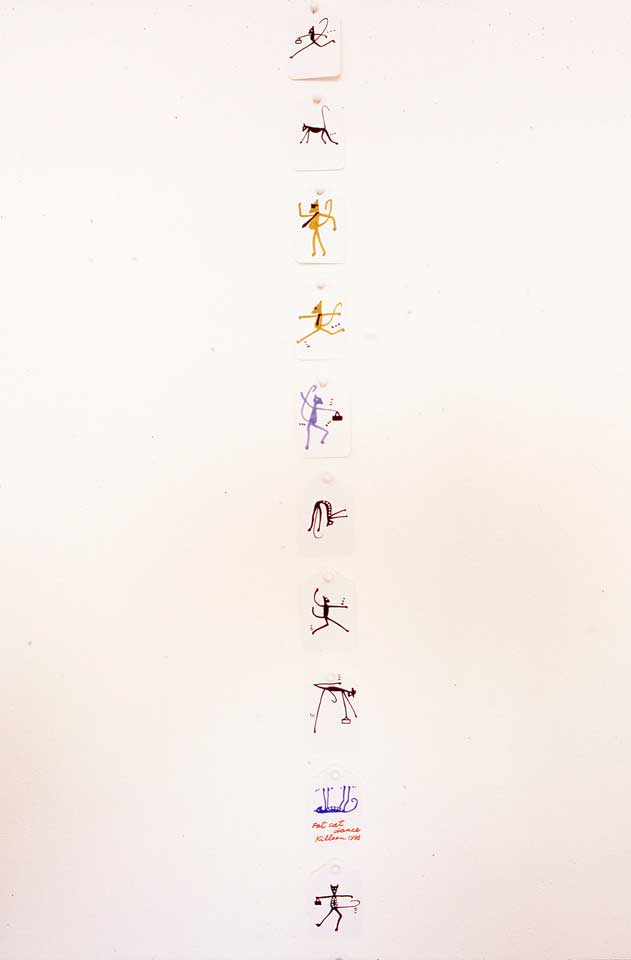 Fat cat
dance
Killeen 1998